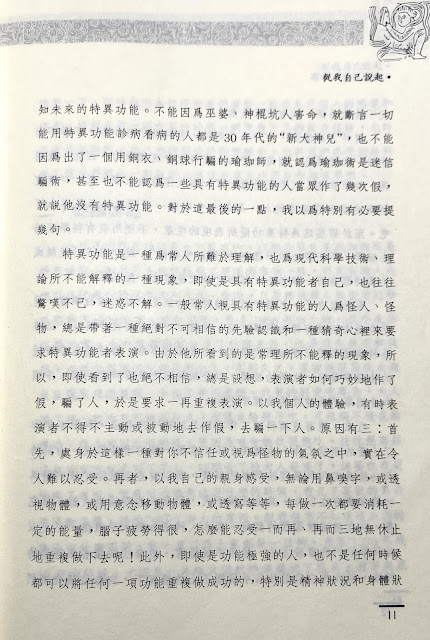 從我自己說起•
知未來的特異功能。不能因爲巫婆、神棍坑人害命，就斷言一切
能用特異功能診病看病的人都是30年代的“新大神兒”，也不能
因爲出了一個用鋼衣、鋼球行騙的瑜珈師，就認爲瑜珈術是迷信
騙術，甚至也不能認爲一些具有特異功能的人當眾作了幾次假，
就說他沒有特異功能。對於這最後的一點，我以爲特別有必要提
幾句。
特異功能是一種爲常人所難於理解，也爲現代科學技術、理
論所不能解釋的一種現象，即使是具有特異功能者自己，也往往
驚嘆不已，迷惑不解。一般常人視具有特異功能的人爲怪人、怪
物，總是帶著一種絕對不可相信的先驗認識和一種猜奇心裡來要
求特異功能者表演。由於他所看到的是常理所不能釋的現象，所
以，即使看到了也絕不相信，總是設想，表演者如何巧妙地作了
假，騙了人，於是要求一再重複表演。以我個人的體驗，有時表
演者不得不主動或被動地去作假，去騙一下人。原因有三：首
先，處身於這樣一種對你不信任或視爲怪物的氣氛之中，實在令
人難以忍受。再者，以我自己的親身感受，無論用鼻嗅字，或透
視物體，或用意念移動物體，或透寫等等，每做一次都要消耗一
定的能量，腦子疲勞得很，怎麼能忍受一而再、再而三地無休止
地重複做下去呢！此外，即使是功能極強的人，也不是任何時候
都可以將任何一項功能重複做成功的，特別是精神狀況和身體狀
11